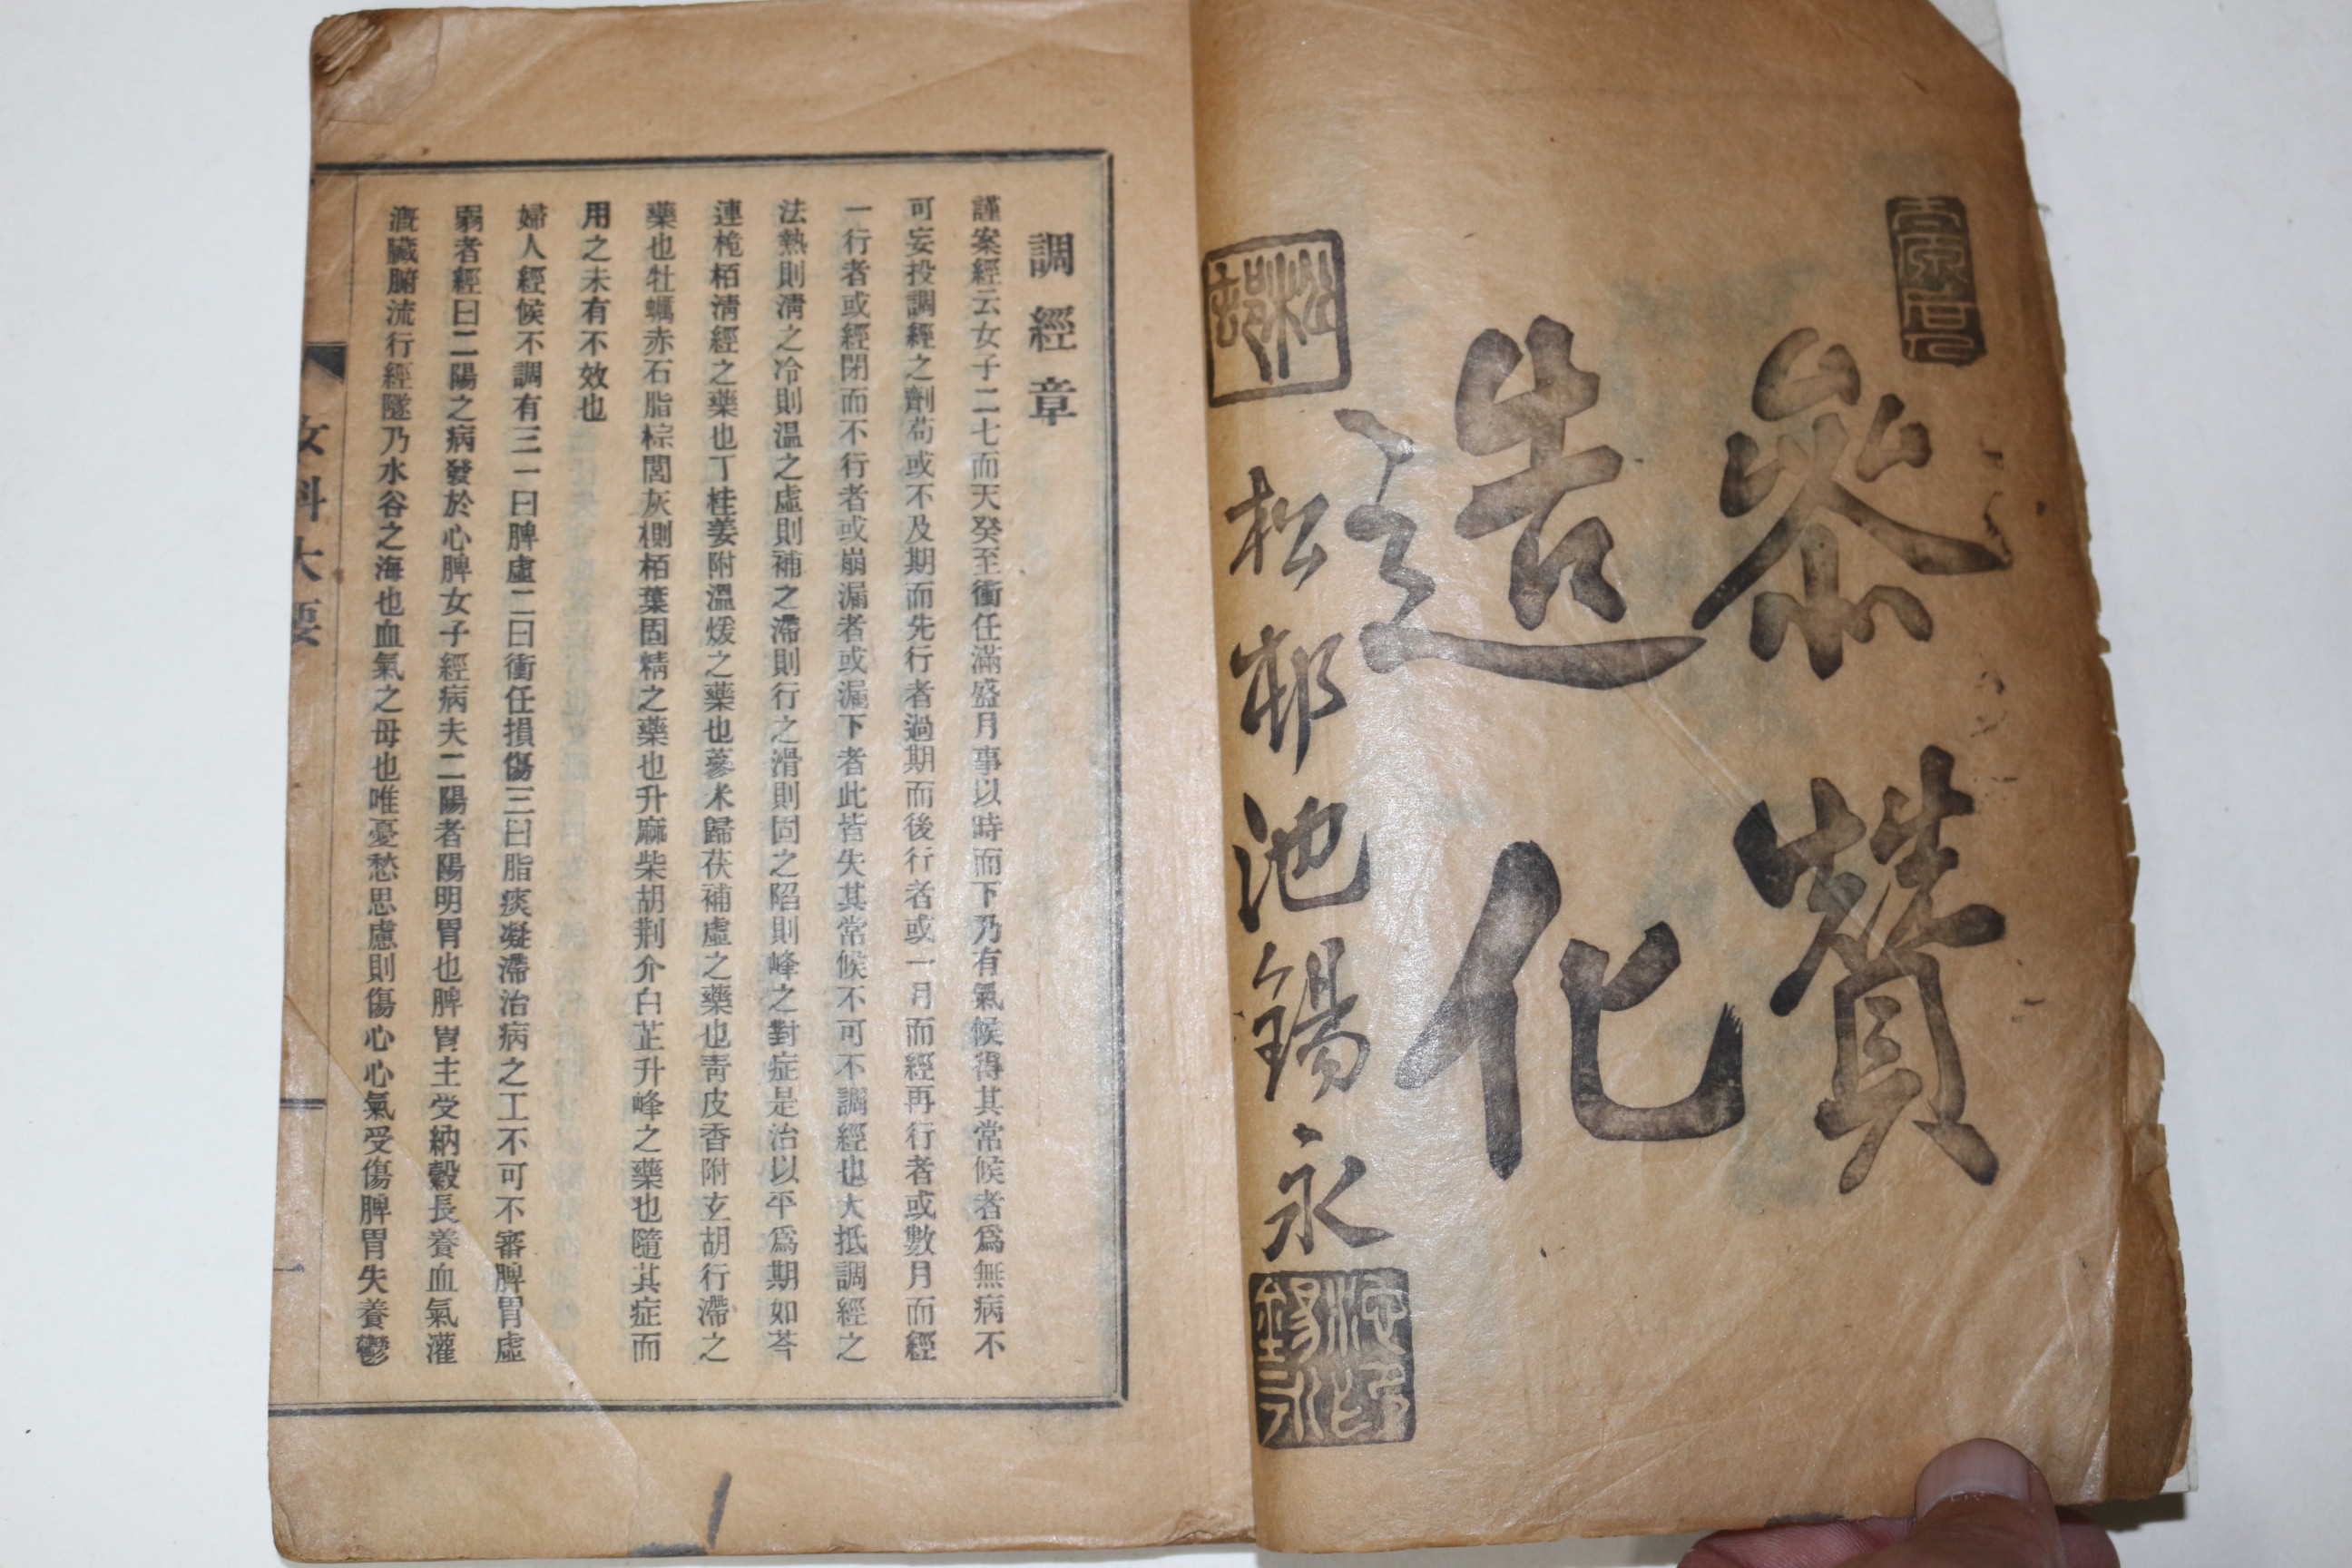 參贊
造化
松邨池錫永
調經章
謹案經云女子二七而天癸至衝任滿盛月事以時而下乃有氣候得其常候者爲無病不
可妄投調經之劑苟或不及期而先行者過期而後行者或一月而經再行者或數月而經
一行者或經閉而不行者或崩漏者或漏下者此皆失其常候不可不調經也大抵調經之
法熱則淸之冷則溫之虛則補之滯則行之滑則固之陷則峰之對症是治以平爲期如芩
連梔栢淸經之藥也丁桂姜附溫煖之藥也蔘朮歸茯補虛之藥也靑皮香附玄胡行滯之
藥也牡蠣赤石脂棕閭灰側栢葉固精之藥也升麻柴胡荊介白芷升峰之藥也隨其症而
用之未有不效也
婦人經候不調有三一曰脾虛二曰衝任損傷三曰脂痰凝滯治病之工不可不審脾胃虛
弱者經曰二陽之病發於心脾女子經病夫二陽者陽明胃也脾胃主受納穀長養血氣灌
漑臟腑流行經隧乃水谷之海也血氣之母也唯憂愁思慮則傷心心氣受傷脾胃失養鬱
女科大要
一